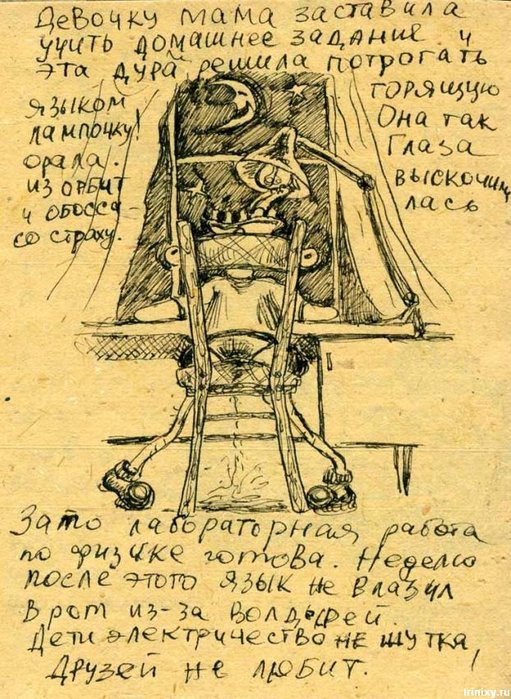 Девочку мама заставила
учить домашнее задание и
эта дура решила потрогать
языком горящую
лампочку! Она так
орала. Глаза
из орбит выскочили
и обосса- лась
со страху.
Зато лабораторная работа
по физике готова. Неделю
после этого язык не влазил
в рот из-за волдерей.
Дети электричество не шутка,
Друзей не любит.
trinixy.ru